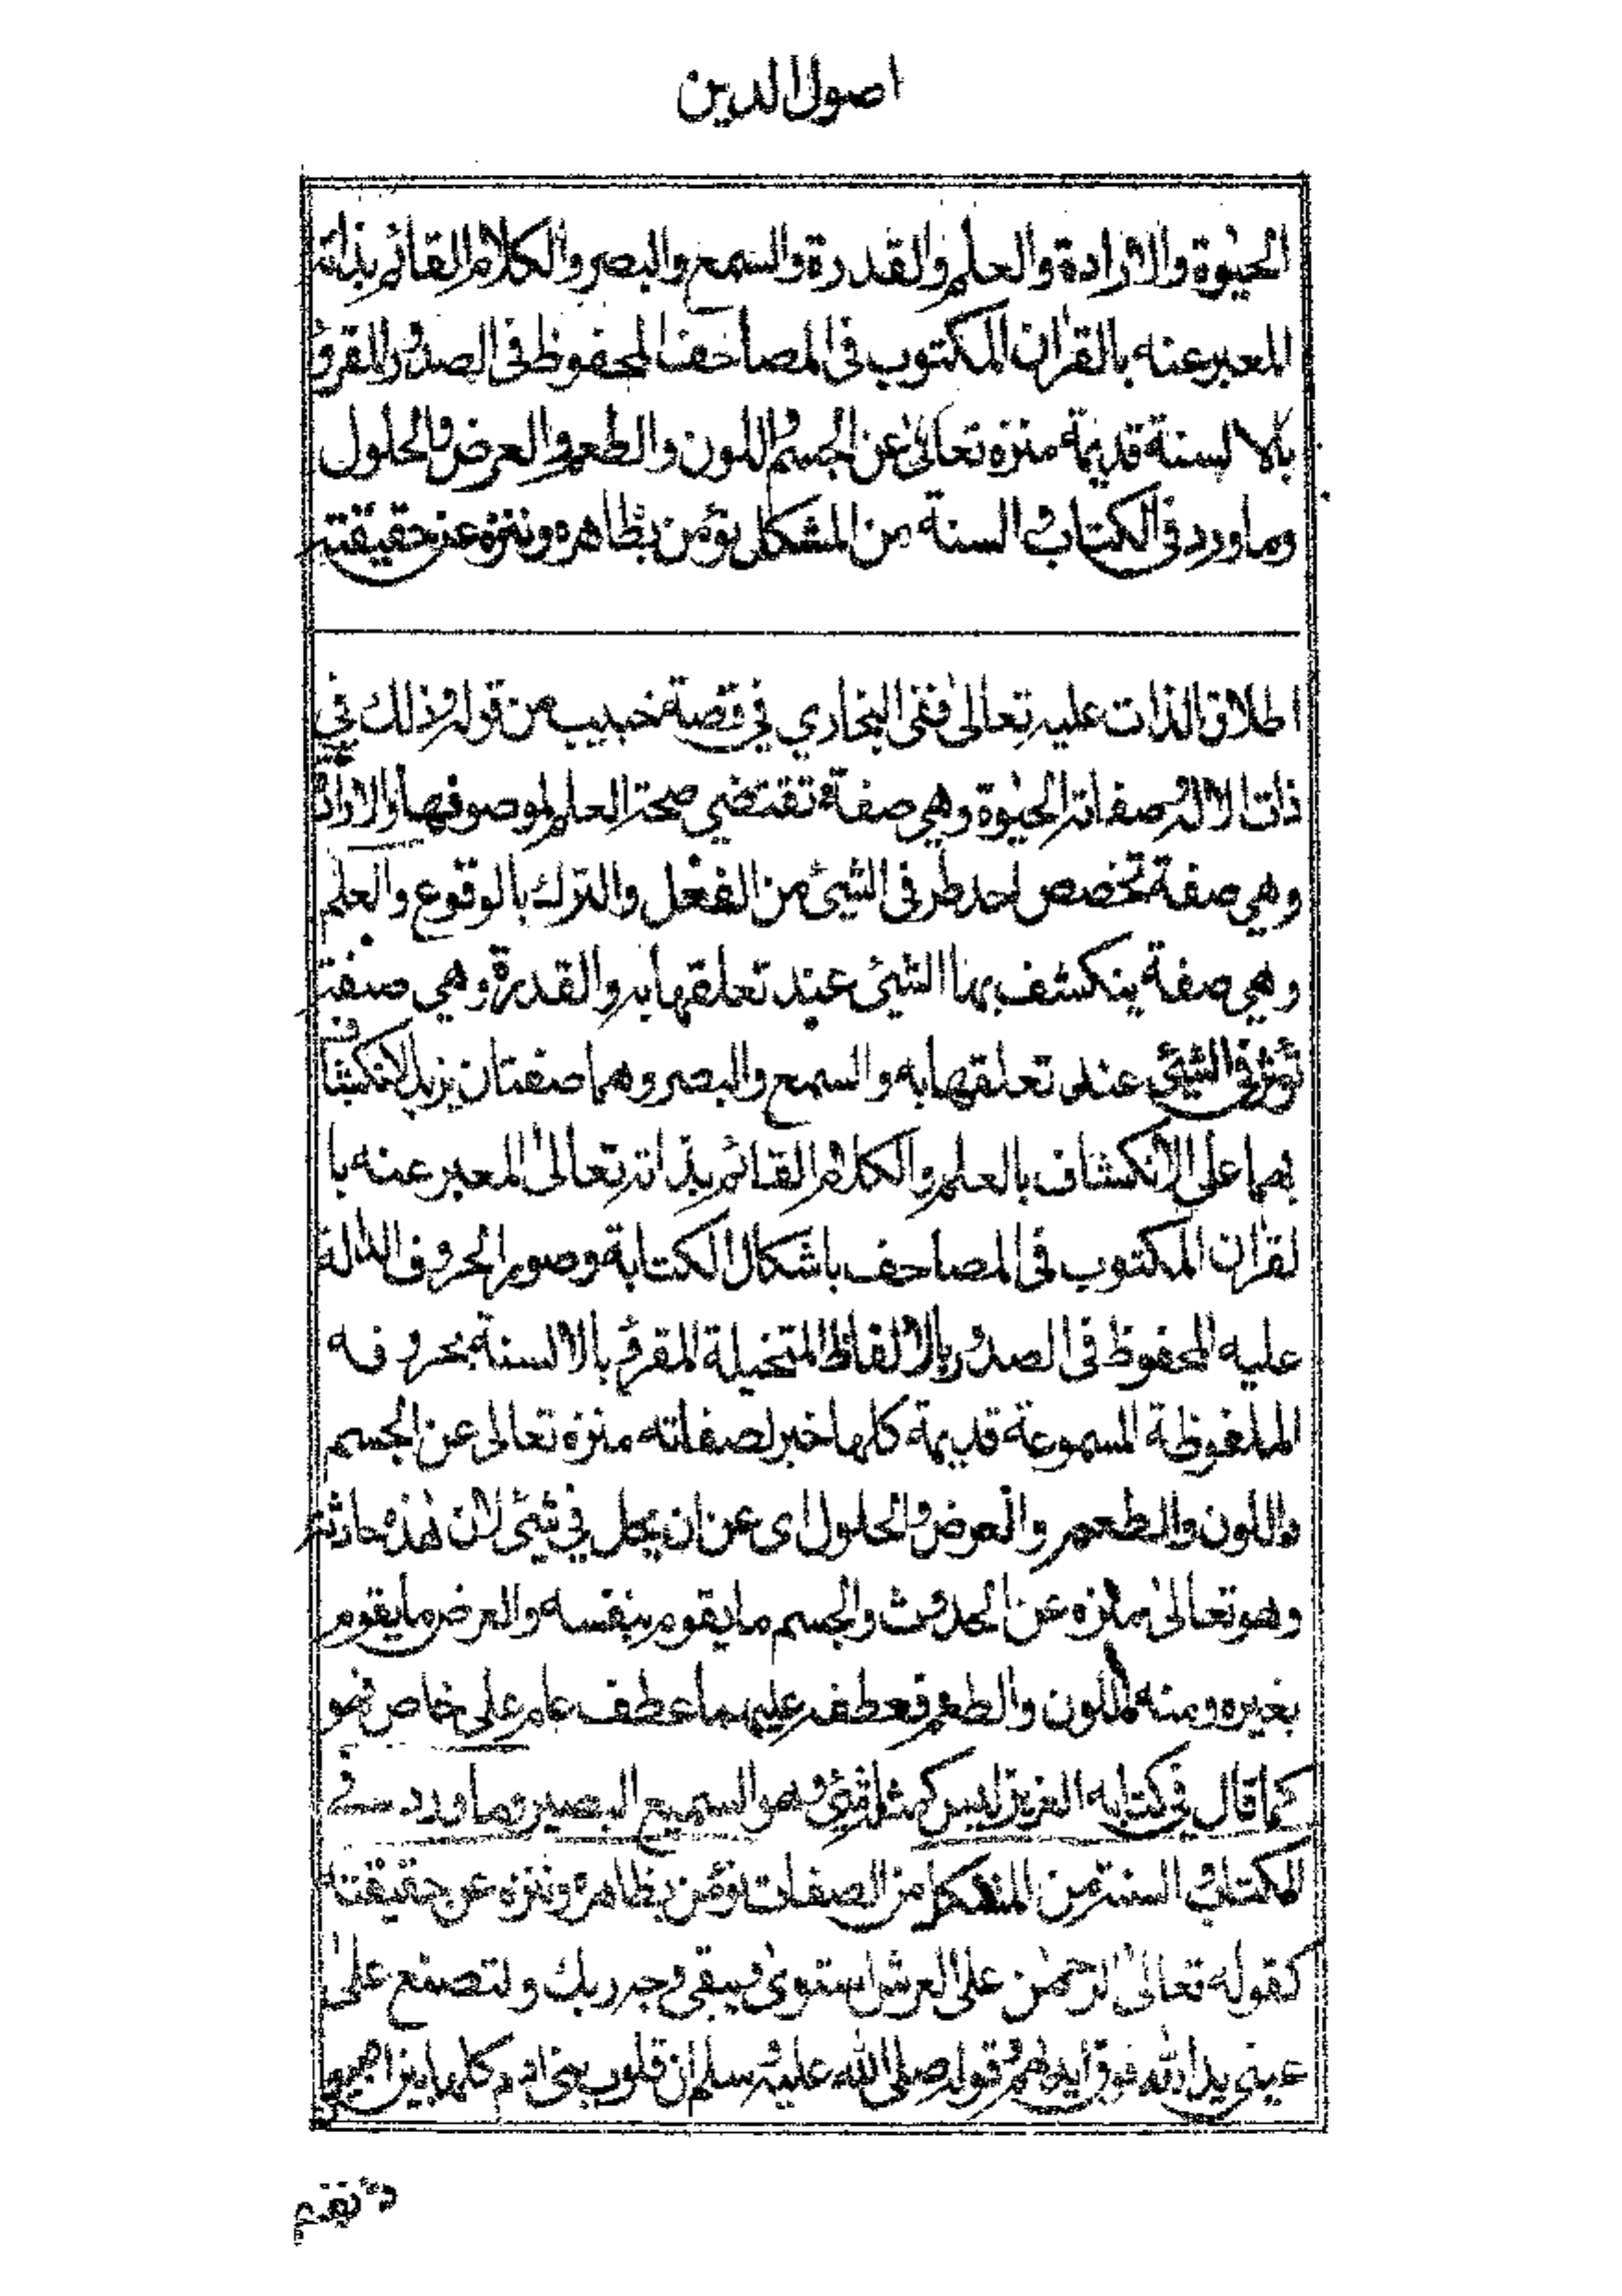 اصول الدين
الحيوة والارادة والعلم والقدرة والسمع والبصر والكلام القائم بذاته
المعبر عنه بالقران المكتوب فى المصاحف المحفوظ فى الصدور المقروء
بالالسنة قديمة منزه تعالى عن الجسم واللون والطعم والعرض والحلول
وماورد فى الكتاب والسنة من المشكل نؤمن بظاهره وننزه عن حقيقته
اطلاق الذات عليه تعالى ففى البخاري في قصة خبيب من قوله وذلك في
ذات الاله وصفاته الحيوة وهي صفة تقتضي صحة العلم لموصوفها والارادة
وهي صفة تخصص احد طرفى الشيئ من الفعل والترك بالوقوع والعلم
وهي صفة ينكشف بها الشيئ عند تعلقها به والقدرة وهي صفة
تؤثر فى الشيئ عند تعلقها به والسمع والبصر وهما صفتان يزيد الانكشاف
بهما على الانكشاف بالعلم والكلام القائم بذاته تعالى المعبر عنه با
لقران المكتوب فى المصاحف باشكال الكتابة وصور الحروف الدالة
عليه المحفوظ فى الصدور بالالفاظ المتخيلة المقروء بالالسنة بحروفه
الملفوظة المسموعة قديمة كلها خبر لصفاته منزه تعالى عن الجسم
واللون والطعم والعرض والحلول اى عن ان يحل في شيئ لان هذه حادثة
وهو تعالى منزه عن الحدوث والجسم ما يقوم بنفسه والعرض ما يقوم
بغيره ومنه اللون والطعم فعطفه عليهما عطف عام على خاص نحو
كما قال في كتابه العزيز ليس كمثله شيئ وهو السميع البصير وما ورد فى
الكتاب والسنة من المشكل من الصفات نؤمن بظاهره وننزه عن حقيقته
كقوله تعالى الرحمن على العرش استوى ويبقى وجه ربك ولتصنع على
عينى يد الله فوق ايديهم وقوله صلى الله عليه وسلم ان قلوب بنى ادم كلها بين اصبعين